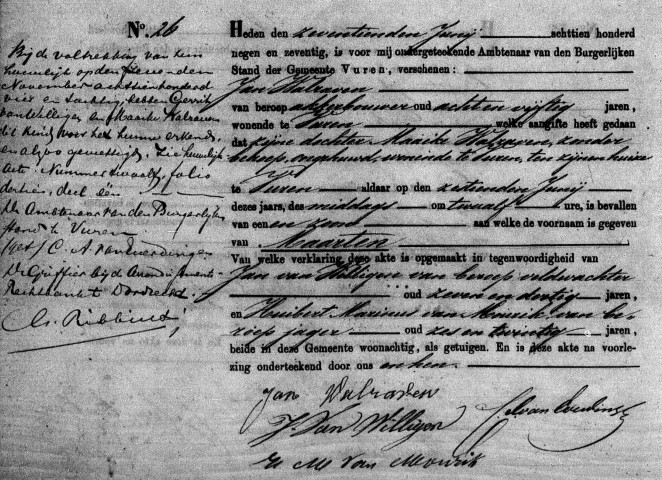 No. 26
Bij de voltrekking van hun
huwelijk op den
November achttienhonderd
vier en tachtig, hebben Gerrit
van Willigen en Maaike Walraven
dit kind voor het hunne erkend,
en alzoo gewettigd. Zie huwelijks
acte Nummer twaalf, folio
dertien, deel één
De Ambtenaar van den Burgerlijken
Stand te Vuren
(get) C. A. van
De Griffier bij de Arrond:
Rechtbank te Dordrecht
Heden den zeventienden Junij achttien honderd
negen en zeventig, is voor mij ondergeteekende Ambtenaar van den Burgerlijken
Stand der Gemeente Vuren, verschenen:
Jan Walraven
van beroep akkerbouwer oud acht en vijftig jaren,
wonende te Vuren welke aangifte heeft gedaan
dat zijne dochter Maaike Walraven, zonder
beroep, ongehuwd, wonende te Vuren, ten zijnen huize
te Vuren aldaar op den zestienden Junij
dezes jaars, des middags om twaalf ure, is bevallen
van een zoon aan welke de voornaam is gegeven
van Maarten
Van welke verklaring deze akte is opgemaakt in tegenwoordigheid van
Jan van Willigen van beroep veldwachter
oud zeven en dertig jaren,
en Huibert Marinus van Mourik van be-
roep jager oud zes en twintig jaren,
beide in deze Gemeente woonachtig, als getuigen. En is deze akte na voorle-
zing onderteekend door ons en hen.
Jan Walraven
J. van Willigen
H M van Mourik